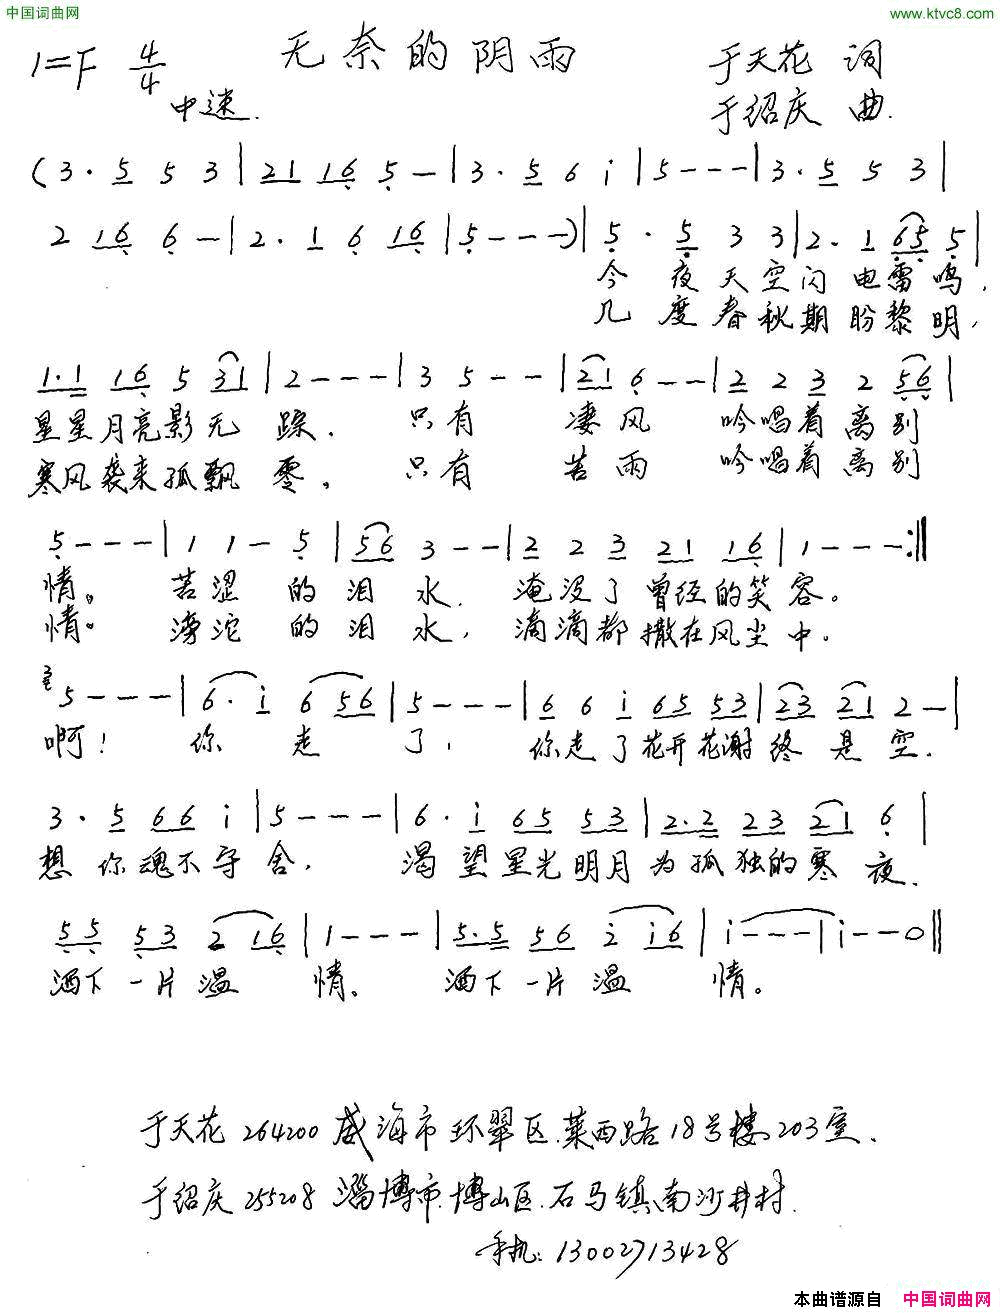 中国词曲网 www.ktvc8.com
无奈的阴雨
1=F 4/4 于天花 词
中速. 于绍庆 曲.
(3· 5 5 3 | 21 16 5 - | 3· 5 6 i | 5 - - - | 3· 5 5 3 |
2 16 6 - | 2· 1 6 16 | 5 - - -) | 5· 5 3 3 | 2· 1 65 5 |
今夜天空闪电雷鸣,
几度春秋期盼黎明,
1·1 16 5 31 | 2 - - - | 3 5 - - | 21 6 - - | 2 2 3 2 56 |
星星月亮影无踪. 只有 凄风 吟唱着离别
寒风袭来孤飘零, 只有 苦雨 吟唱着离别
5 - - - | 1 1 - 5 | 56 3 - - | 2 2 3 21 16 | 1 - - - :||
情。 苦涩 的泪水. 淹没了曾经的笑容。
情。 滂沱 的泪水, 滴滴都撒在风尘中.
5 - - - | 6· i 6 56 | 5 - - - | 6 6 i 65 53 | 23 21 2 - |
啊! 你走了, 你走了花开花谢终是空.
3· 5 66 i | 5 - - - | 6· i 65 53 | 2·2 23 21 6 |
想你魂不守舍, 渴望星光明月为孤独的寒夜.
55 53 2 16 | 1 - - - | 5·5 56 2 i6 | i - - - | i - - 0 ||
洒下一片温情、 洒下一片温情。
于天花 264200 威海市环翠区.莱西路18号楼203室.
于绍庆 255208 淄博市.博山区.石马镇南沙井村.
手机: 13002713428
本曲谱源自 中国词曲网